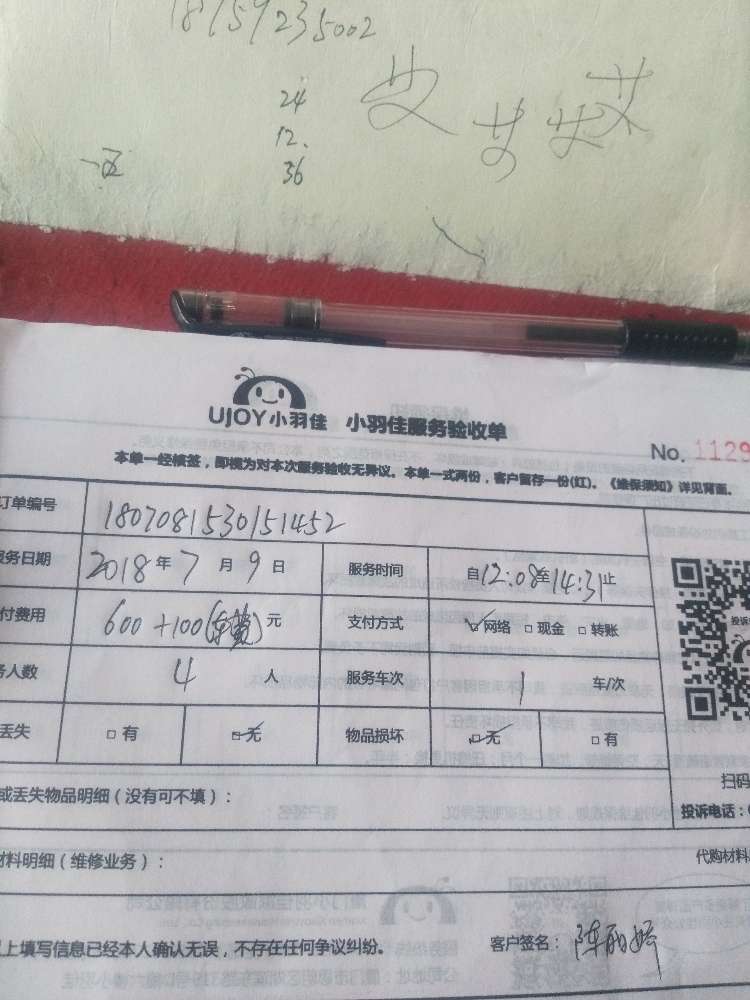 18759235002
24
12.
36
UJOY小羽佳 小羽佳服务验收单
No. 1129
本单一经核签，即视为对本次服务验收无异议。本单一式两份，客户留存一份(红)。《维保须知》详见背面。
订单编号 1807081530151452
务日期 2018年7月9日 服务时间 自12:08至14:31止
付费用 600+100(车费)元 支付方式 网络 现金 转账
务人数 4人 服务车次 1车/次
丢失 有 无 物品损坏 无 有
或丢失物品明细（没有可不填）：
扫码
投诉电话：0
材料明细（维修业务）：
代购材料
上填写信息已经本人确认无误，不存在任何争议纠纷。 客户签名：陈丽婷